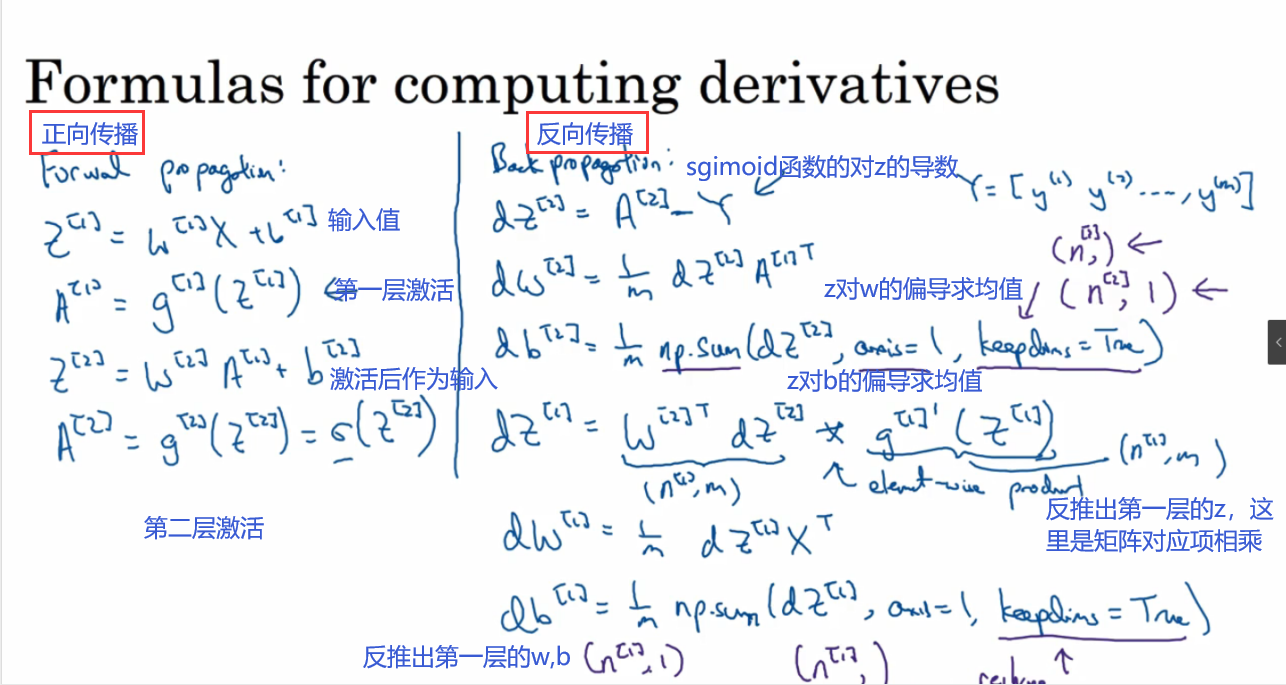 Formulas for computing derivatives
正向传播
Forwal propagation:
Z^[1] = W^[1]X + b^[1] 输入值
A^[1] = g^[1](Z^[1]) ← 第一层激活
Z^[2] = W^[2]A^[1] + b^[2]
激活后作为输入
A^[2] = g^[2](Z^[2]) = σ(Z^[2])
第二层激活
反向传播
Back propagation:
sgimoid函数的对z的导数
dZ^[2] = A^[2] - Y ← Y = [y^(1) y^(2) ..., y^(m)]
dW^[2] = 1/m dZ^[2]A^[1]T
z对w的偏导求均值
(n^[2],) ←
(n^[2], 1) ←
db^[2] = 1/m np.sum(dZ^[2], axis=1, keepdims=True)
z对b的偏导求均值
dZ^[1] = W^[2]T dZ^[2] * g^[1]'(Z^[1])
(n^[1], m) element-wise product (n^[1], m)
反推出第一层的z，这
里是矩阵对应项相乘
dW^[1] = 1/m dZ^[1]X^T
db^[1] = 1/m np.sum(dZ^[1], axis=1, keepdims=True)
反推出第一层的w,b (n^[1], 1) (n^[1],) ↑